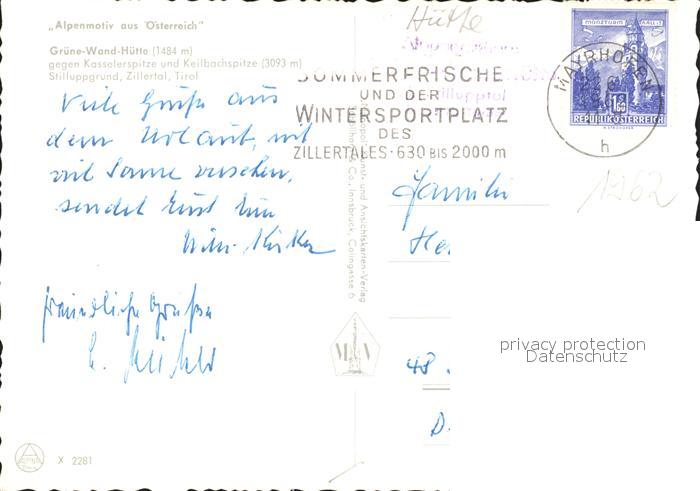 „Alpenmotiv aus Österreich"
Grüne-Wand-Hütte (1484 m)
gegen Kasselerspitze und Keilbachspitze (3093 m)
Stilluppgrund, Zillertal, Tirol
Viele Grüße aus
dem Urlaub, mit
viel Sonne versehen,
sendet
freundliche Grüße
X 2281
Hütte
SOMMERFRISCHE
UND DER
WINTERSPORTPLATZ
DES
ZILLERTALES · 630 BIS 2000 m
MAYRHOFEN
h
MÜNZTURM HALL i. T.
REPUBLIK ÖSTERREICH
1962
Kunst- und Ansichtskarten-Verlag
& Co., Innsbruck, Colingasse 6
Familie
48
D.
privacy protection
Datenschutz